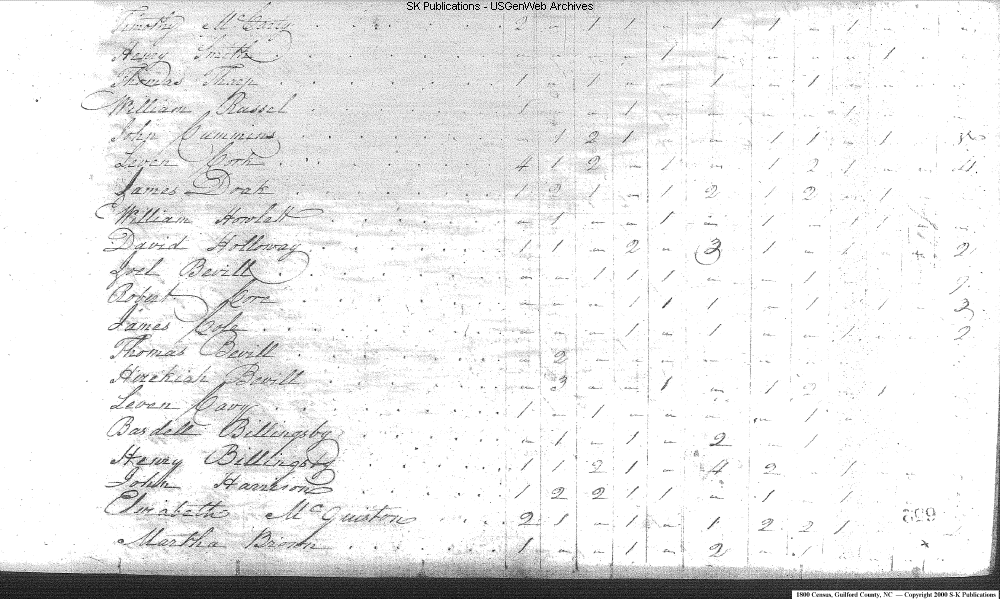 SK Publications - USGenWeb Archives
Timothy McCurry 2 - 1 1 - 1 - 1 - 1 -
Henry Smith - - - - 1 - - - - 1
Thomas Tharp 1 - 1 - - 1 - 1 -
William Russel 1 - - 1 - - - - 1
John Cummins - 1 2 1 - - 1 1 - 1
Leven Cook 4 1 2 - 1 - 1 2 1 - 4
James Doak 1 2 1 - 1 2 1 2 - 1
William Howlett - 1 - - 1 - 1 - 1 1
David Holloway 1 1 - 2 - 3 1 - 1 - 2
Joel Bevill - - 1 1 1 - - 1 - 1
Robert Core - - - 1 1 1 - 1 - 1 3
James Cole - - - 1 - 1 - - 1 2
Thomas Bevill - 2 - - - - - - -
Hezekiah Bevill - 3 - - 1 - 1 2 - 1
Leven Cavy 1 - 1 - - - - 1 -
Basdell Billingsby - 1 - 1 - 2 - 1
Henry Billingsby 1 1 2 1 - 4 2 - 1 -
John Harrison 1 2 2 1 1 - 1 - 1
Elizabeth McQuiston 2 1 - 1 - 1 2 2 1
Martha Brown 1 - - 1 - 2 - 1
1800 Census, Guilford County, NC — Copyright 2000 S-K Publications